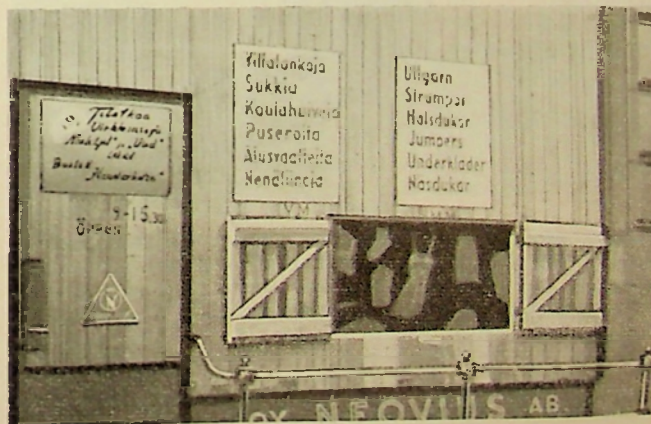 Tilatkaa
ÖPPEN 9-15.30
N
Villalankoja
Sukkia
Kaulahuiveja
Puseroita
Alusvaatteita
Nenäliinoja
Ullgarn
Strumpor
Halsdukar
Jumpers
Underkläder
Näsdukar
OY. NEOVIUS AB.